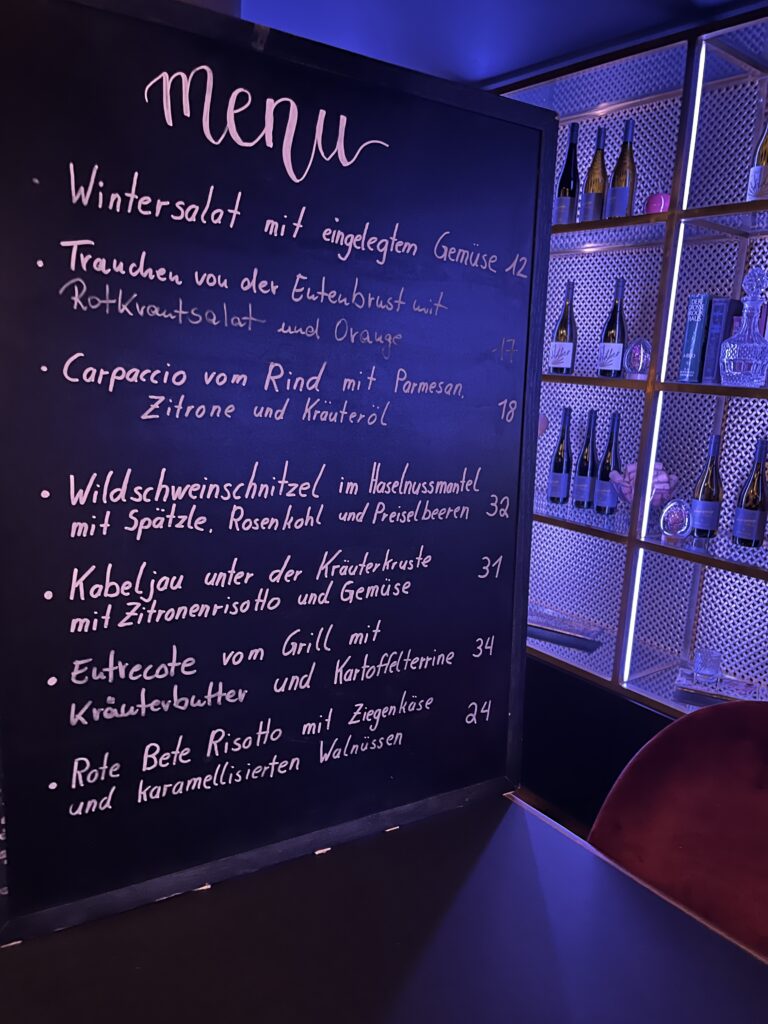 menu
• Wintersalat mit eingelegtem Gemüse 12
• Tranchen von der Entenbrust mit
Rotkrautsalat und Orange 17
• Carpaccio vom Rind mit Parmesan,
Zitrone und Kräuteröl 18
• Wildschweinschnitzel im Haselnussmantel
mit Spätzle, Rosenkohl und Preiselbeeren 32
• Kabeljau unter der Kräuterkruste 31
mit Zitronenrisotto und Gemüse
• Entrecote vom Grill mit
Kräuterbutter und Kartoffelterrine 34
• Rote Bete Risotto mit Ziegenkäse 24
und karamellisierten Walnüssen